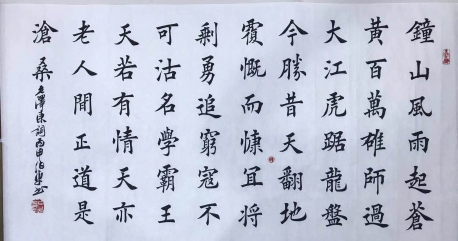 鐘山風雨起蒼
黃百萬雄師過
大江虎踞龍盤
今勝昔天翻地
覆慨而慷宜將
剩勇追窮寇不
可沽名學霸王
天若有情天亦
老人間正道是
滄桑 毛澤東詞丙申